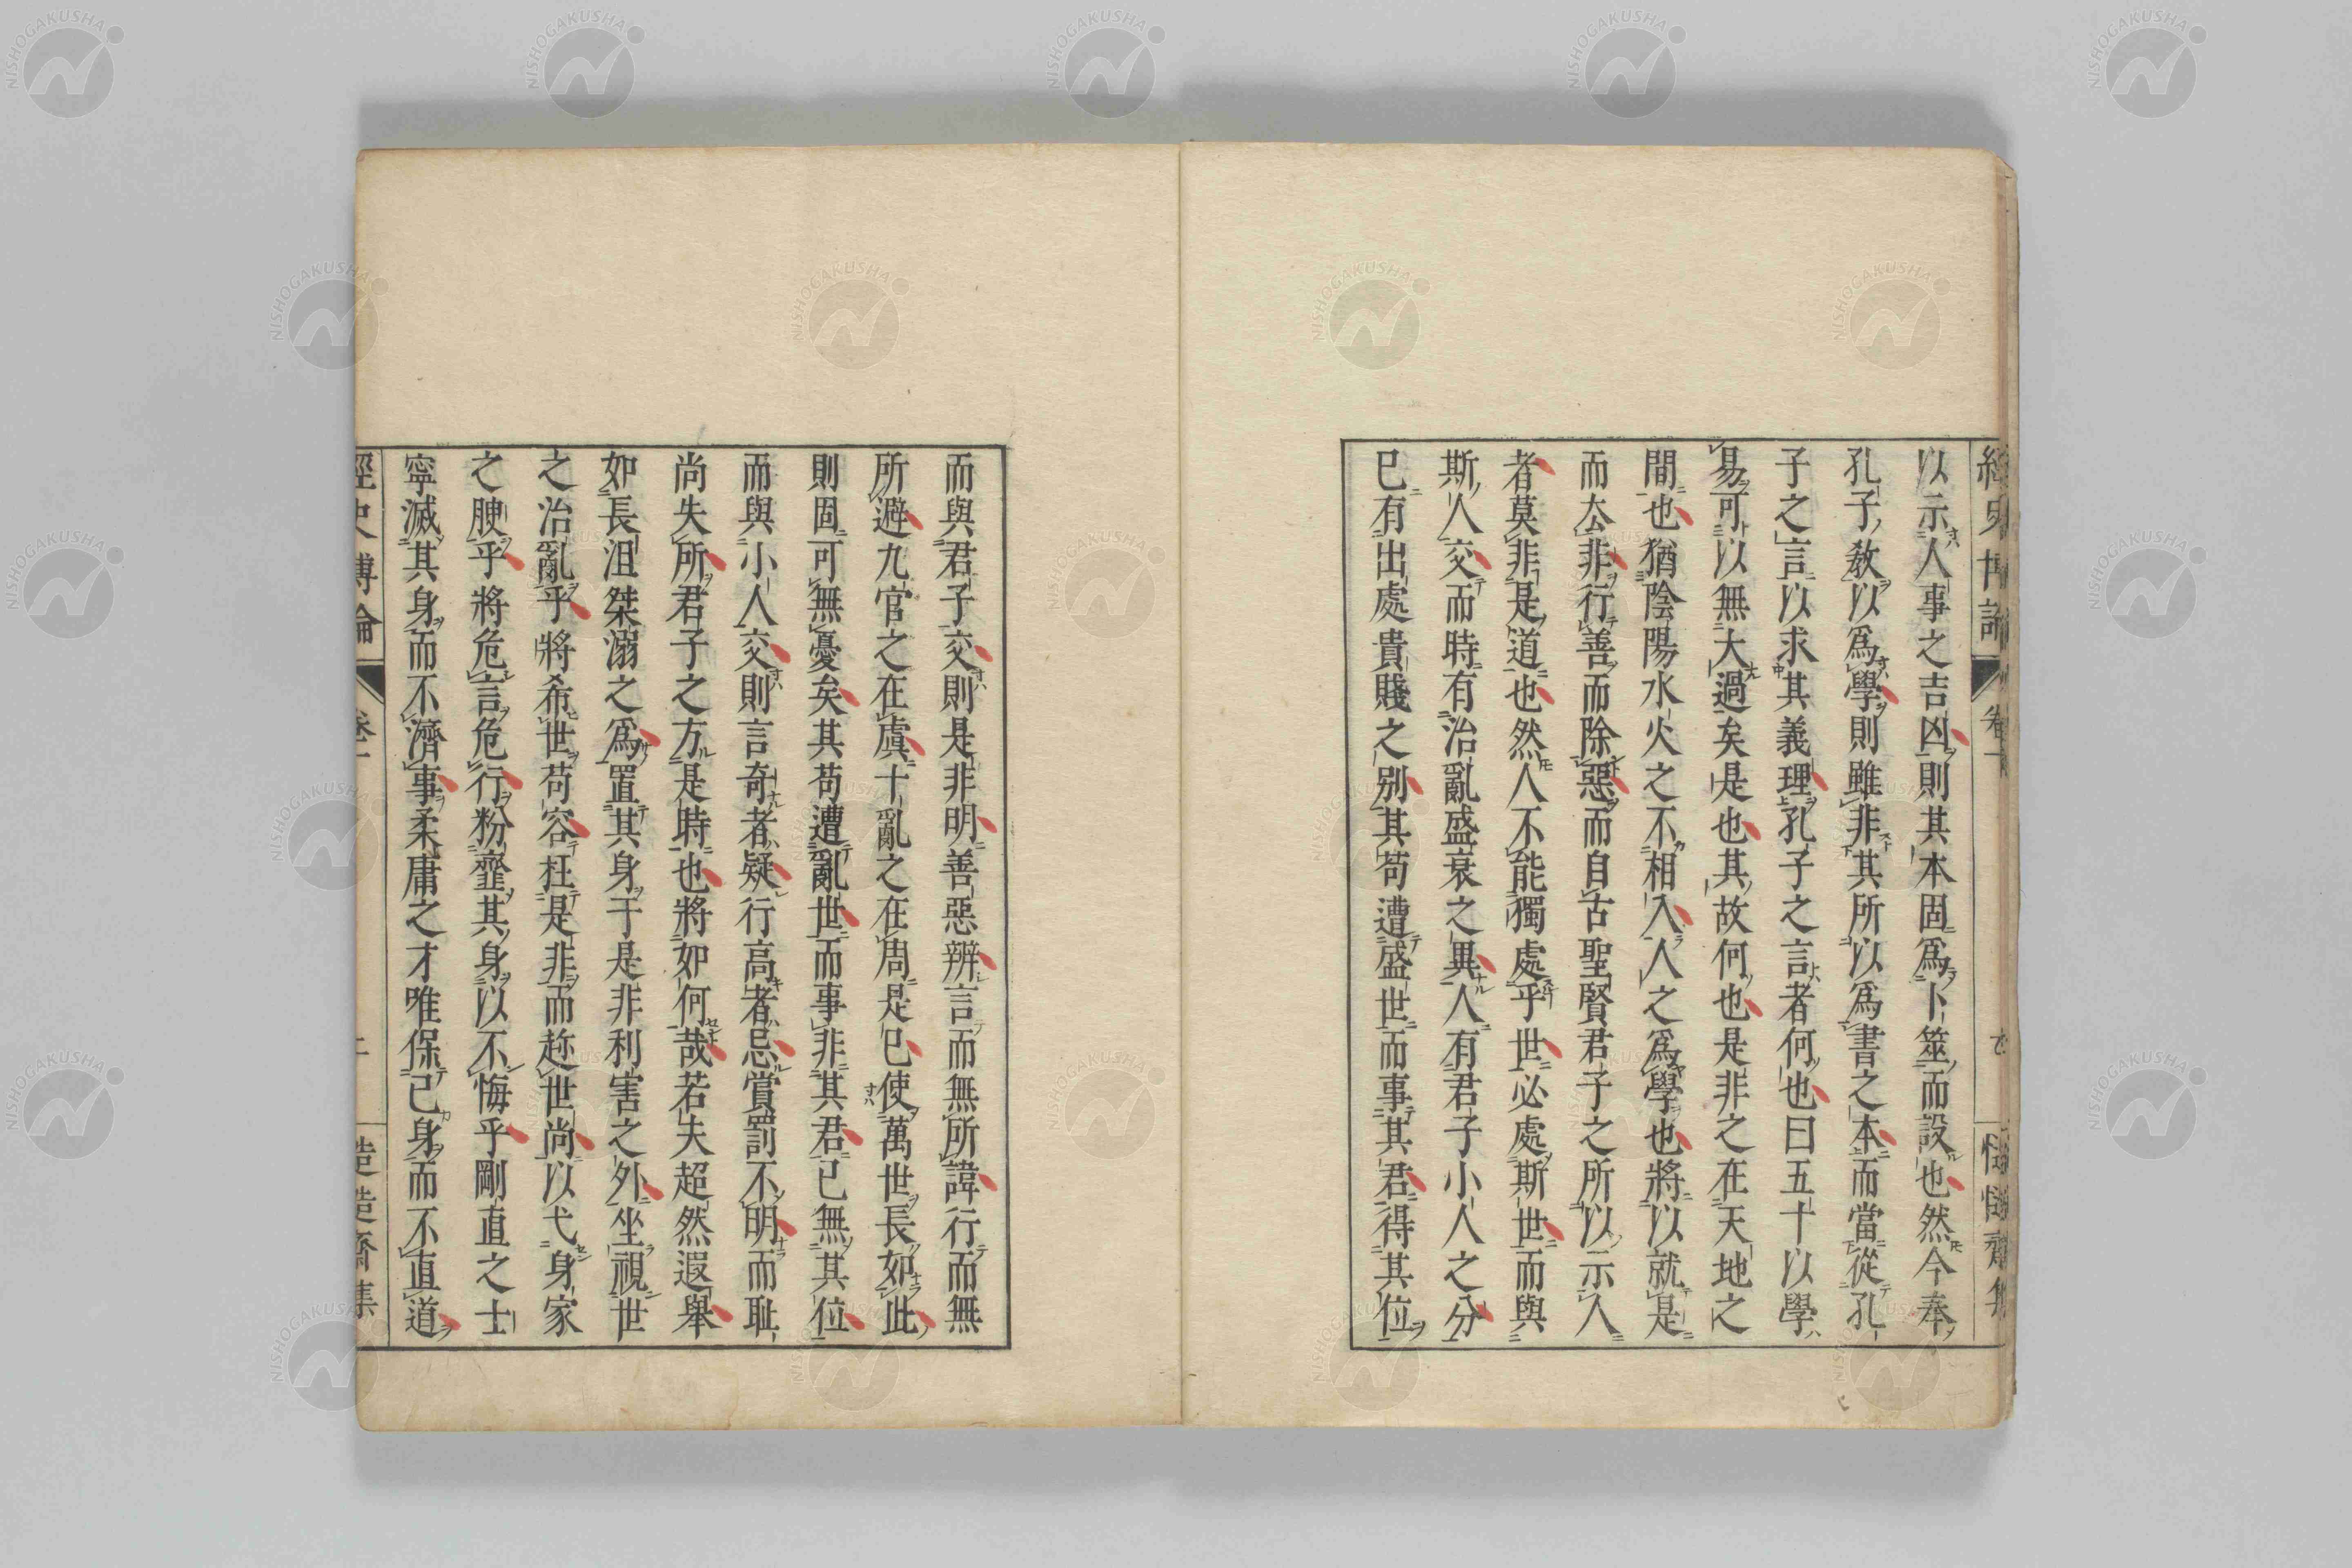 以示人事之吉凶則其本固爲卜筮而設也然今奉
孔子敎以爲學則雖非其所以爲書之本而當從孔
子之言以求其義理孔子之言者何也曰五十以學
易可以無大過矣是也其故何也是非之在天地之
間也猶陰陽水火之不相入人之爲學也將以就是
而厺非行善而除惡而自古聖賢君子之所以示人
者莫非是道也然人不能獨處乎世必處斯世而與
斯人交而時有治亂盛衰之異人有君子小人之分
已有出處貴賤之別其苟遭盛世而事其君得其位
而與君子交則是非明善惡辨言而無所諱行而無
所避九官之在虞十亂之在周是已使萬世長如此
則固可無憂矣其苟遭亂世而事非其君已無其位
而與小人交則言奇者疑行高者忌賞罰不明而耻
尚失所君子之方是時也將如何哉若夫超然遐舉
如長沮桀溺之爲置其身于是非利害之外坐視世
之治亂乎將希世苟容枉是非而趂世尚以弋身家
之腴乎將危言危行粉虀其身以不悔乎剛直之士
寧滅其身而不濟事柔庸之才唯保己身而不直道
經史博論
卷一
慥慥齋集
NISHOGAKUSHA